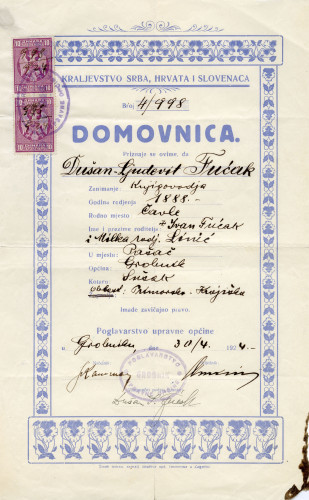 KRALJEVSTVO SRBA, HRVATA I SLOVENACA
Broj 4/998
DOMOVNICA.
Priznaje se ovime, da
Dušan-Ljudevit Fućak
Zanimanje: Knjigovodja
Godina rodjenja 1888.-
Rodno mjesto Čavle
Ime i prezime roditelja + Ivan Fućak
i Milka rodj. Linić
U mjestu: Pašac
Općina: Grobnik
Kotar: Sušak
oblast: Primorsko-Krajiška
imade zavičajno pravo.
Poglavarstvo upravne općine
u Grobniku, 30/4 1924.-
Dušan Fućak